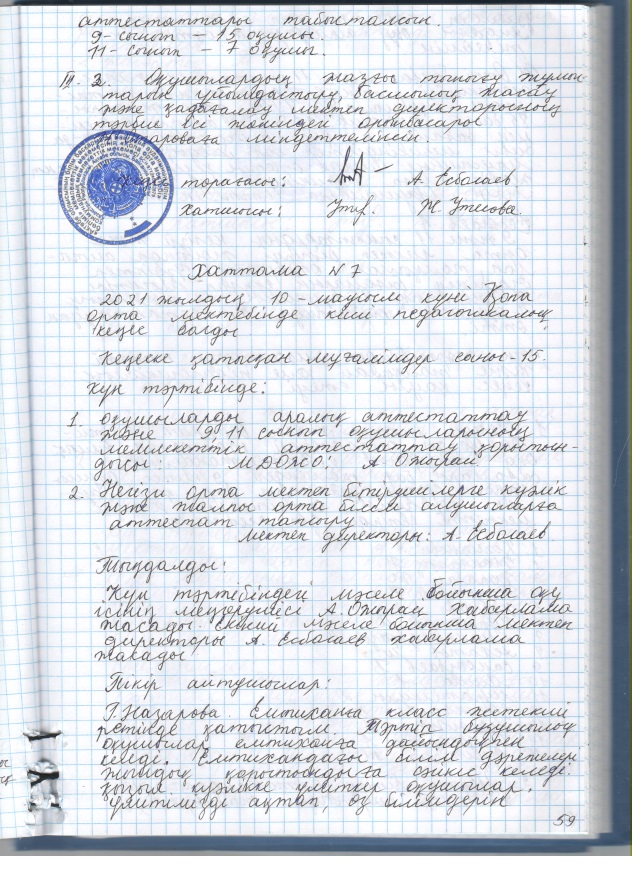 аттестаттары табысталсын.
9-сынып – 15 оқушы.
11-сынып – 7 оқушы.
III. 2. Оқушылардың жазғы тынығу жұмыс
тарын ұйымдастыру, басшылық жасау
және қадағалау мектеп директорының
тәрбие ісі жөніндегі орынбасары
міндеттелінсін.
Кеңес төрағасы: А. Есболаев
хатшысы: Ж. Утесова.
Хаттама N 7
2021 жылдың 10-маусым күні Қопа
орта мектебінде кіші педагогикалық
кеңес болды
Кеңеске қатысқан мұғалімдер саны-15.
Күн тәртібінде:
1. Оқушыларды аралық аттестаттау
және 9,11 сынып оқушыларының
мемлекеттік аттестаттау қорытын-
дысы: МДОЖО: А Ожорай
2. Негізгі орта мектеп бітірушілерге куәлік
және жалпы орта білім алушыларға
аттестат тапсыру
Мектеп директоры: А. Есболаев
Тыңдалды:
Күн тәртібіндегі мәселе бойынша оқу
ісінің меңгерушісі А.Ожорай хабарлама
жасады. Екінші мәселе бойынша мектеп
директоры А. Есболаев хабарлама
жасады
Пікір айтушылар:
Г.Назарова. Емтиханға класс жетекші
ретінде қатыстым. Тәртіп бұзушылық
оқушылар емтиханға дайындықпен
келеді. Емтихандағы білім дәрежелері
жылдық қорытындыға сәйкес келеді.
Қызыл куәлікке үміткер оқушылар,
үмітімізді ақтап, өз білімдерін
59